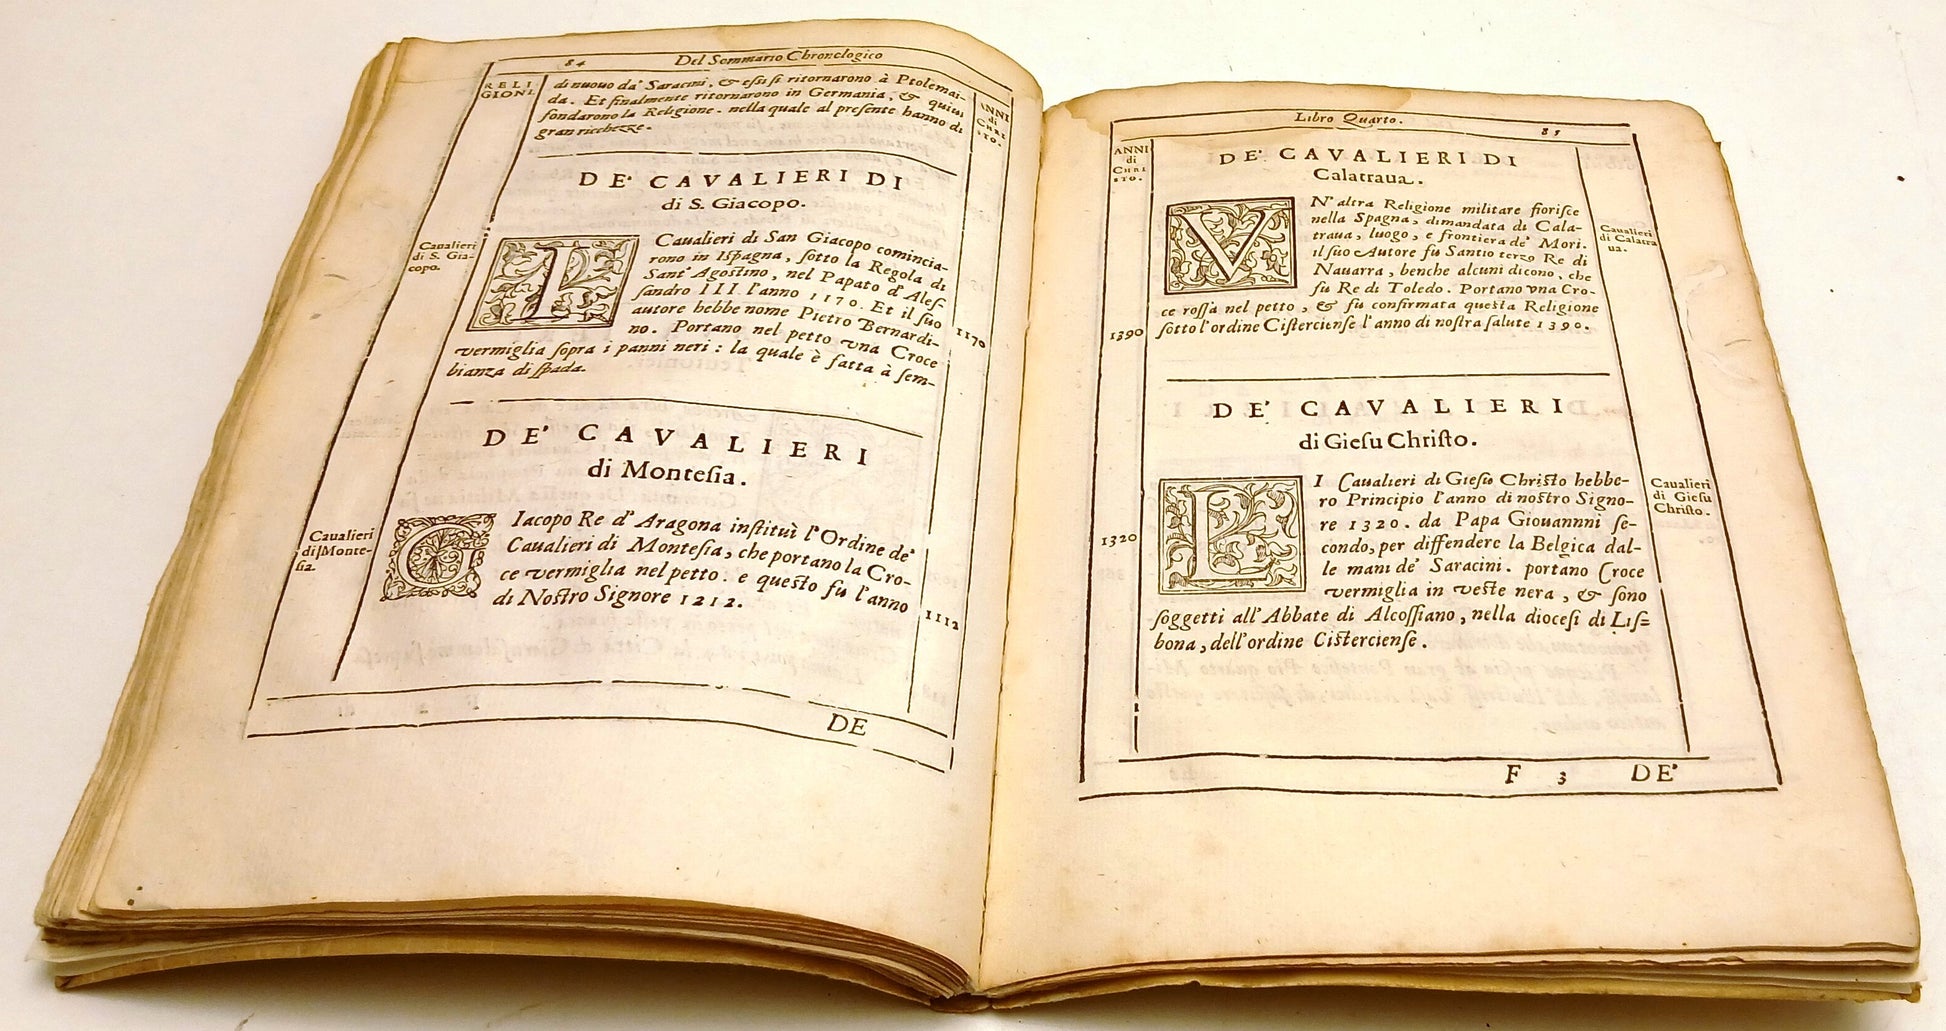 84
Del Sommario Chronologico
RELI
GIONI.
di nuouo da' Saracini, & essi si ritornarono à Ptolemai-
da. Et finalmente ritornarono in Germania, & quiui
fondarono la Religione. nella quale al presente hanno di
gran ricchezze.
ANNI
di
CHRI
STO.
DE' CAVALIERI DI
di S. Giacopo.
Caualieri
di S. Gia-
copo.
I Caualieri di San Giacopo comincia-
rono in Ispagna, sotto la Regola di
Sant' Agostino, nel Papato d' Ales-
sandro III. l'anno 1170. Et il suo
autore hebbe nome Pietro Bernardi-
no. Portano nel petto vna Croce
vermiglia sopra i panni neri: la quale è fatta à sem-
bianza di spada.
1170
DE' CAVALIERI
di Montesia.
Caualieri
di Monte-
sia.
GIacopo Re d' Aragona instituì l'Ordine de'
Caualieri di Montesia, che portano la Cro-
ce vermiglia nel petto. e questo fu l'anno
di Nostro Signore 1212.
1112
DE
Libro Quarto.
85
ANNI
di
CHRI
STO.
DE' CAVALIERI DI
Calatraua.
VN' altra Religione militare fiorisce
nella Spagna, dimandata di Cala-
traua, luogo, e frontiera de' Mori.
il suo Autore fu Santio terzo Re di
Nauarra, benche alcuni dicono, che
fu Re di Toledo. Portano vna Cro-
ce rossa nel petto, & fu confirmata questa Religione
sotto l'ordine Cisterciense l'anno di nostra salute 1390.
Caualieri
di Calatra
ua.
1390
DE' CAVALIERI
di Giesu Christo.
LI Caualieri di Giesu Christo hebbe-
ro Principio l'anno di nostro Signo-
re 1320. da Papa Giouannni se-
condo, per diffendere la Belgica dal-
le mani de' Saracini. portano Croce
vermiglia in veste nera, & sono
soggetti all' Abbate di Alcossiano, nella diocesi di Lis-
bona, dell'ordine Cisterciense.
Caualieri
di Giesu
Christo.
1320
F 3 DE'